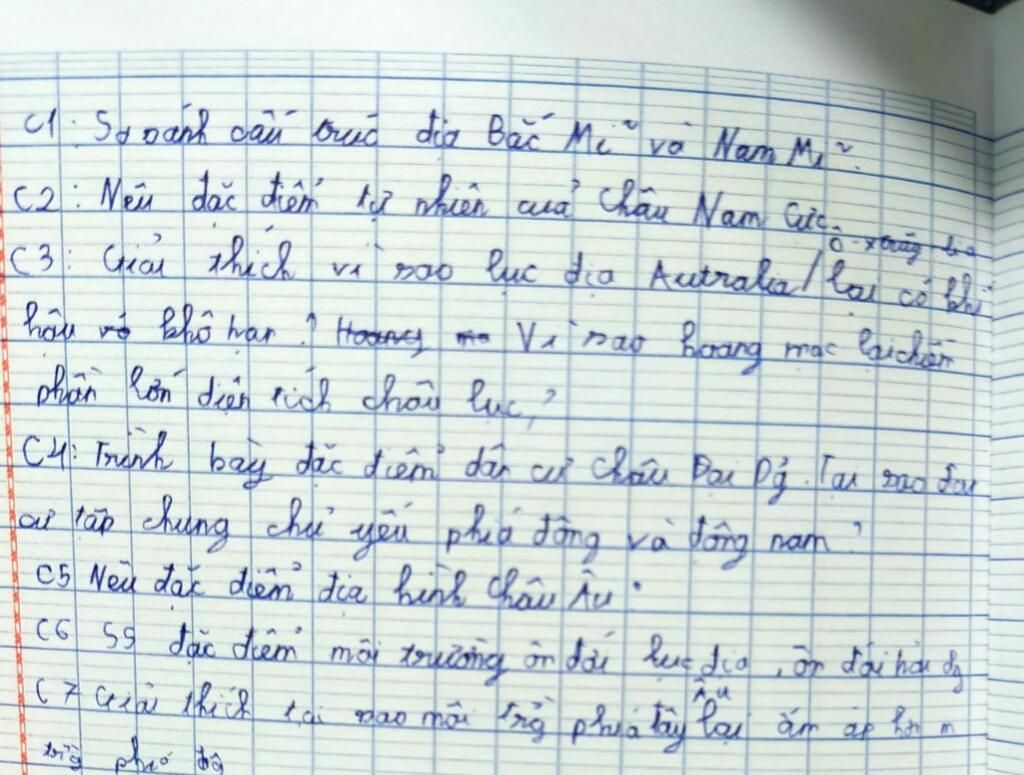 C1: So sánh cấu trúc địa Bắc Mĩ và Nam Mĩ.
C2: Nêu đặc điểm tự nhiên của Châu Nam Cực.
C3: Giải thích vì sao lục địa Autralia / lại có khí
hậu khô hạn? Vì sao hoang mạc lại chiếm
phần lớn diện tích châu lục?
C4: Trình bày đặc điểm dân cư Châu Đại Dg. Tại sao dân
cư tập chung chủ yếu phía đông và đông nam?
C5 Nêu đặc điểm địa hình Châu Âu.
C6 SS đặc điểm môi trường ôn đới lục địa, ôn đới hải dg
C7 Giải thích tại sao môi trg phía tây Âu lại ấm áp hơn m
trg phía đg